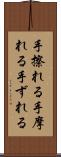 手擦れる手摩
れる手ずれる